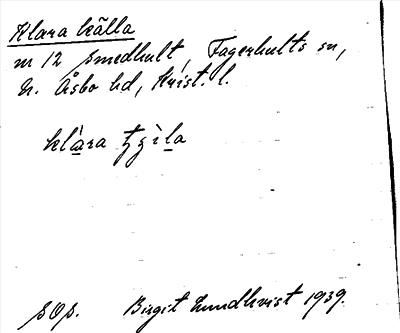 Klara källa
nr 12 Smedhult, Fagerhults sn,
N. Åsbo hd, Krist. l.
klàra
SOS. Birgit Lundkvist 1939.